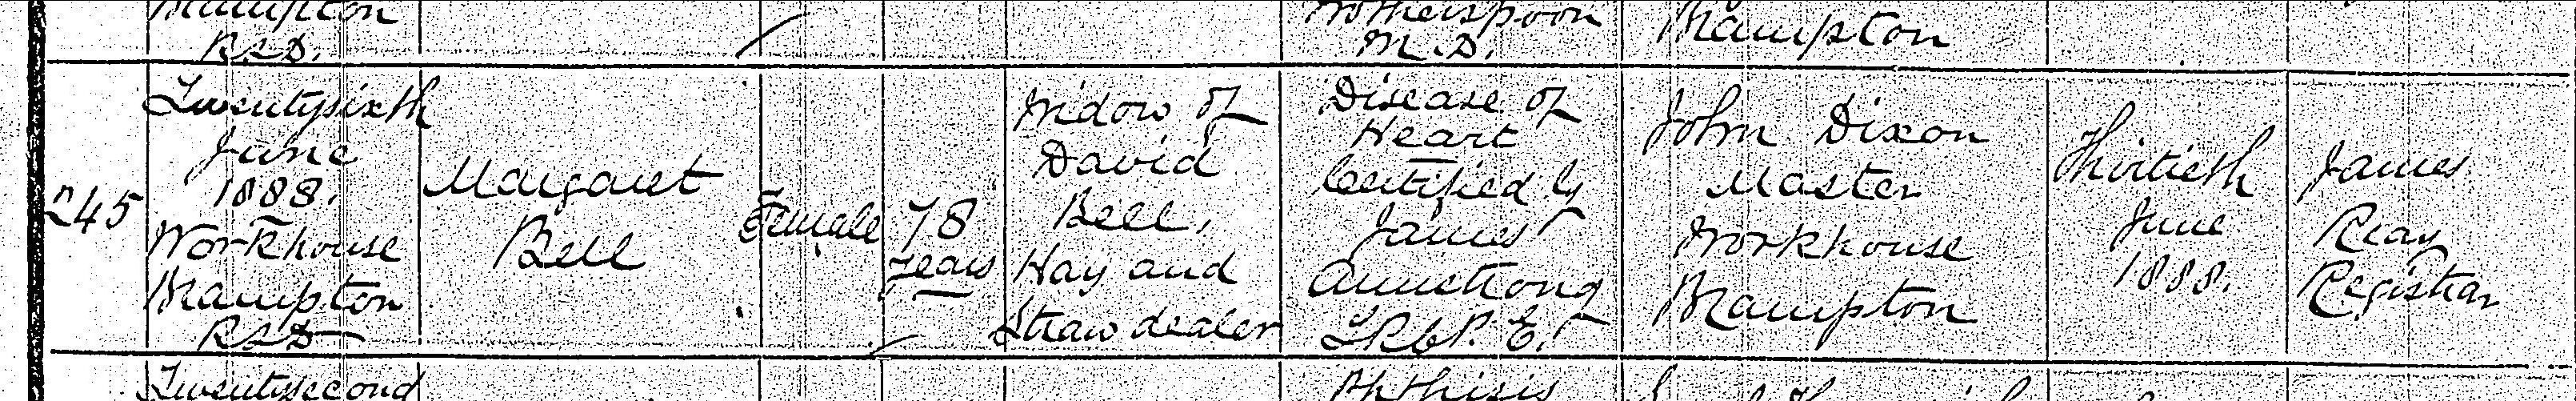 Brampton
R.S.D.
Wotherspoon
M.D.
Brampton
245
Twentysixth
June
1888.
Workhouse
Brampton
RSD
Margaret
Bell
Female
78
years
Widow of
David
Bell,
Hay and
Straw dealer
Disease of
Heart
Certified by
James
Armstrong
LRCP. E.
John Dixon
Master
Workhouse
Brampton
Thirtieth
June
1888.
James
Reay
Registrar
Twentysecond
Phthisis